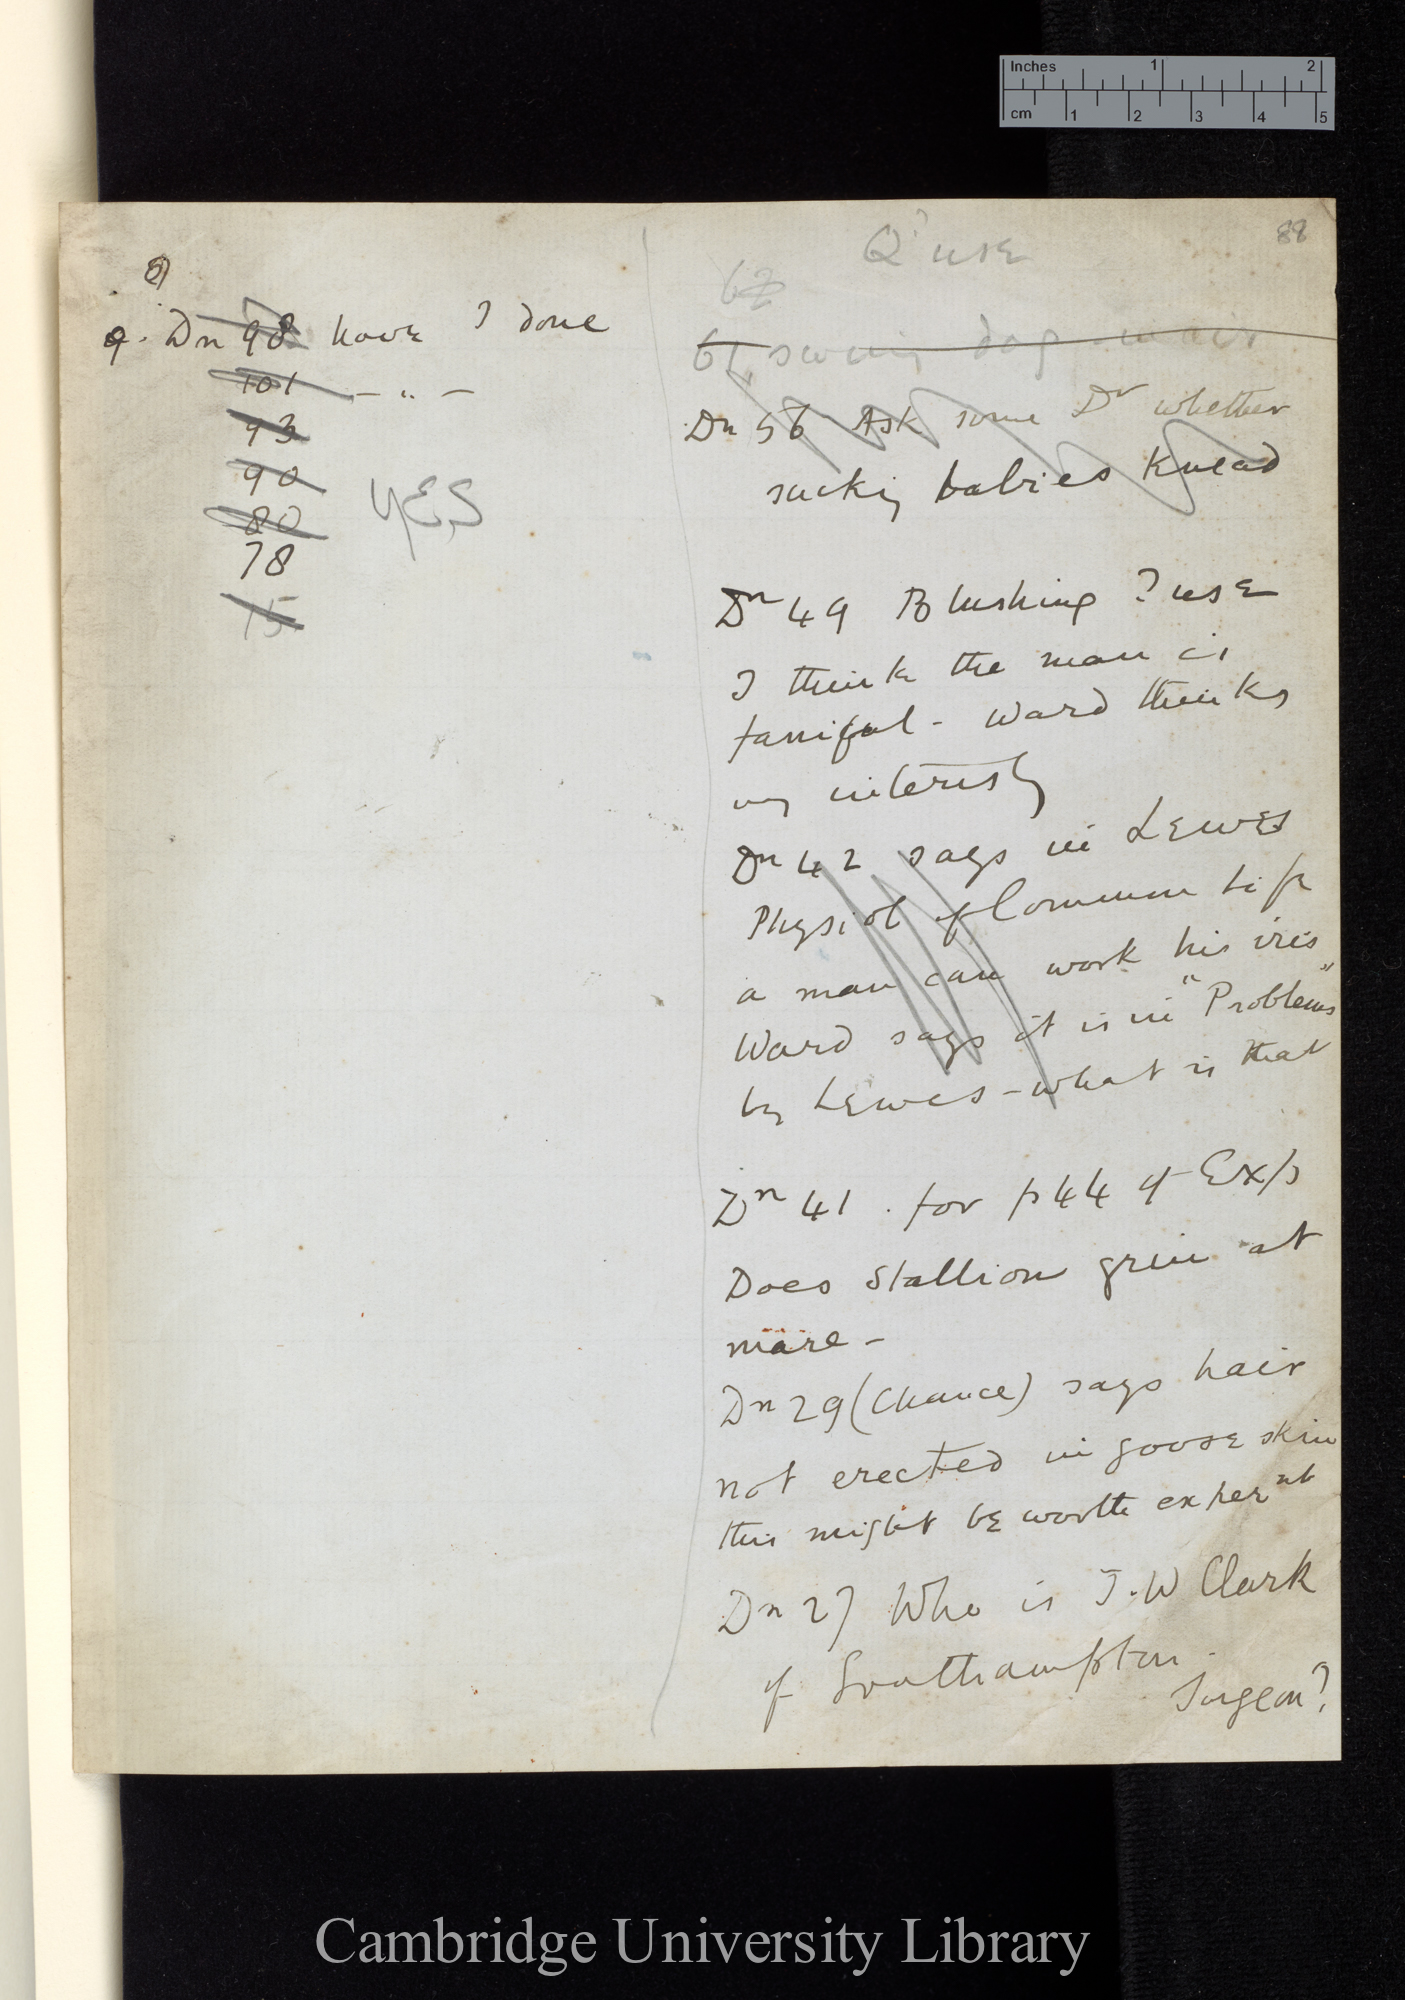 Inches 1 2
cm 1 2 3 4 5
88
Q. Dn 98 have I done
101 — " —
93
90
80
YES
78
15
Q' use
62
61 swing dog
Dn 56 Ask some Dr whether
sucking babies knead
Dn 49 Blushing ? use
I think the man is
fanciful - Ward thinks
very interestg
Dn 42 says in Lewes
Physiol of Common Life
a man can work his iris
Ward says it is in "Problems"
by Lewes - what is that
Dn 41 . for p 44 of Exps
Does Stallion grin at
mare -
Dn 29 (Chance) says hair
not erected in goose skin
this might be worth expernt
Dn 27 Who is J. W Clark
of Southampton.
Surgeon?
Cambridge University Library